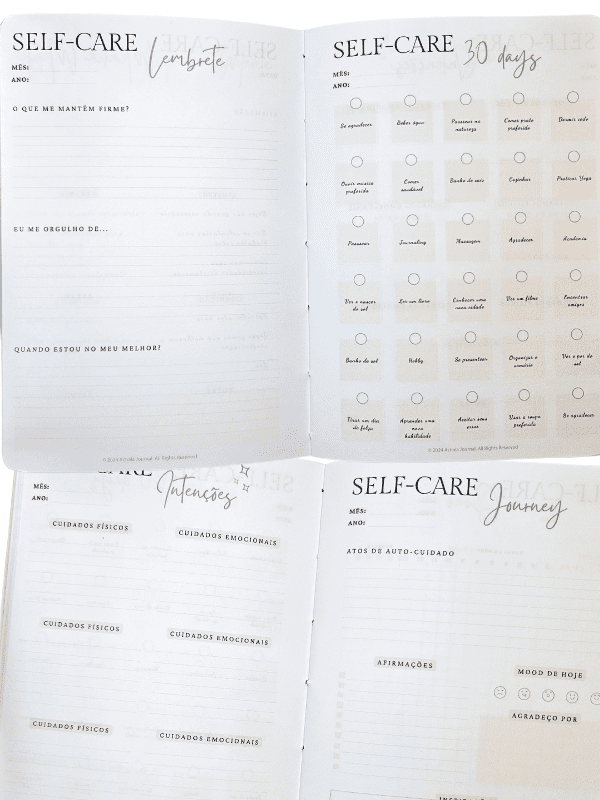 SELF-CARE Lembrete
MÊS:
ANO:
O QUE ME MANTÉM FIRME?
EU ME ORGULHO DE...
QUANDO ESTOU NO MEU MELHOR?
© 2024 Journal. All Rights Reserved
SELF-CARE 30 days
MÊS:
ANO:
Se agradecer
Beber água
Passear na
natureza
Comer prato
preferido
Dormir cedo
Ouvir música
preferida
Comer
saudável
Banho de sais
Cozinhar
Praticar Yoga
Passear
Journaling
Massagem
Agradecer
Academia
Ver o nascer
do sol
Ler um livro
Conhecer uma
nova cidade
Ver um filme
Encontrar
amigos
Banho de sol
Hobby
Se presentear
Organizar o
armário
Ver o por do
sol
Tirar um dia
de folga
Aprender uma
nova
habilidade
Aceitar seus
erros
Usar a roupa
preferida
Se agradecer
© 2024 Journal. All Rights Reserved
CARE Intenções
MÊS:
ANO:
CUIDADOS FÍSICOS
CUIDADOS EMOCIONAIS
CUIDADOS FÍSICOS
CUIDADOS EMOCIONAIS
CUIDADOS FÍSICOS
CUIDADOS EMOCIONAIS
SELF-CARE Journey
MÊS:
ANO:
ATOS DE AUTO-CUIDADO
AFIRMAÇÕES
MOOD DE HOJE
AGRADEÇO POR